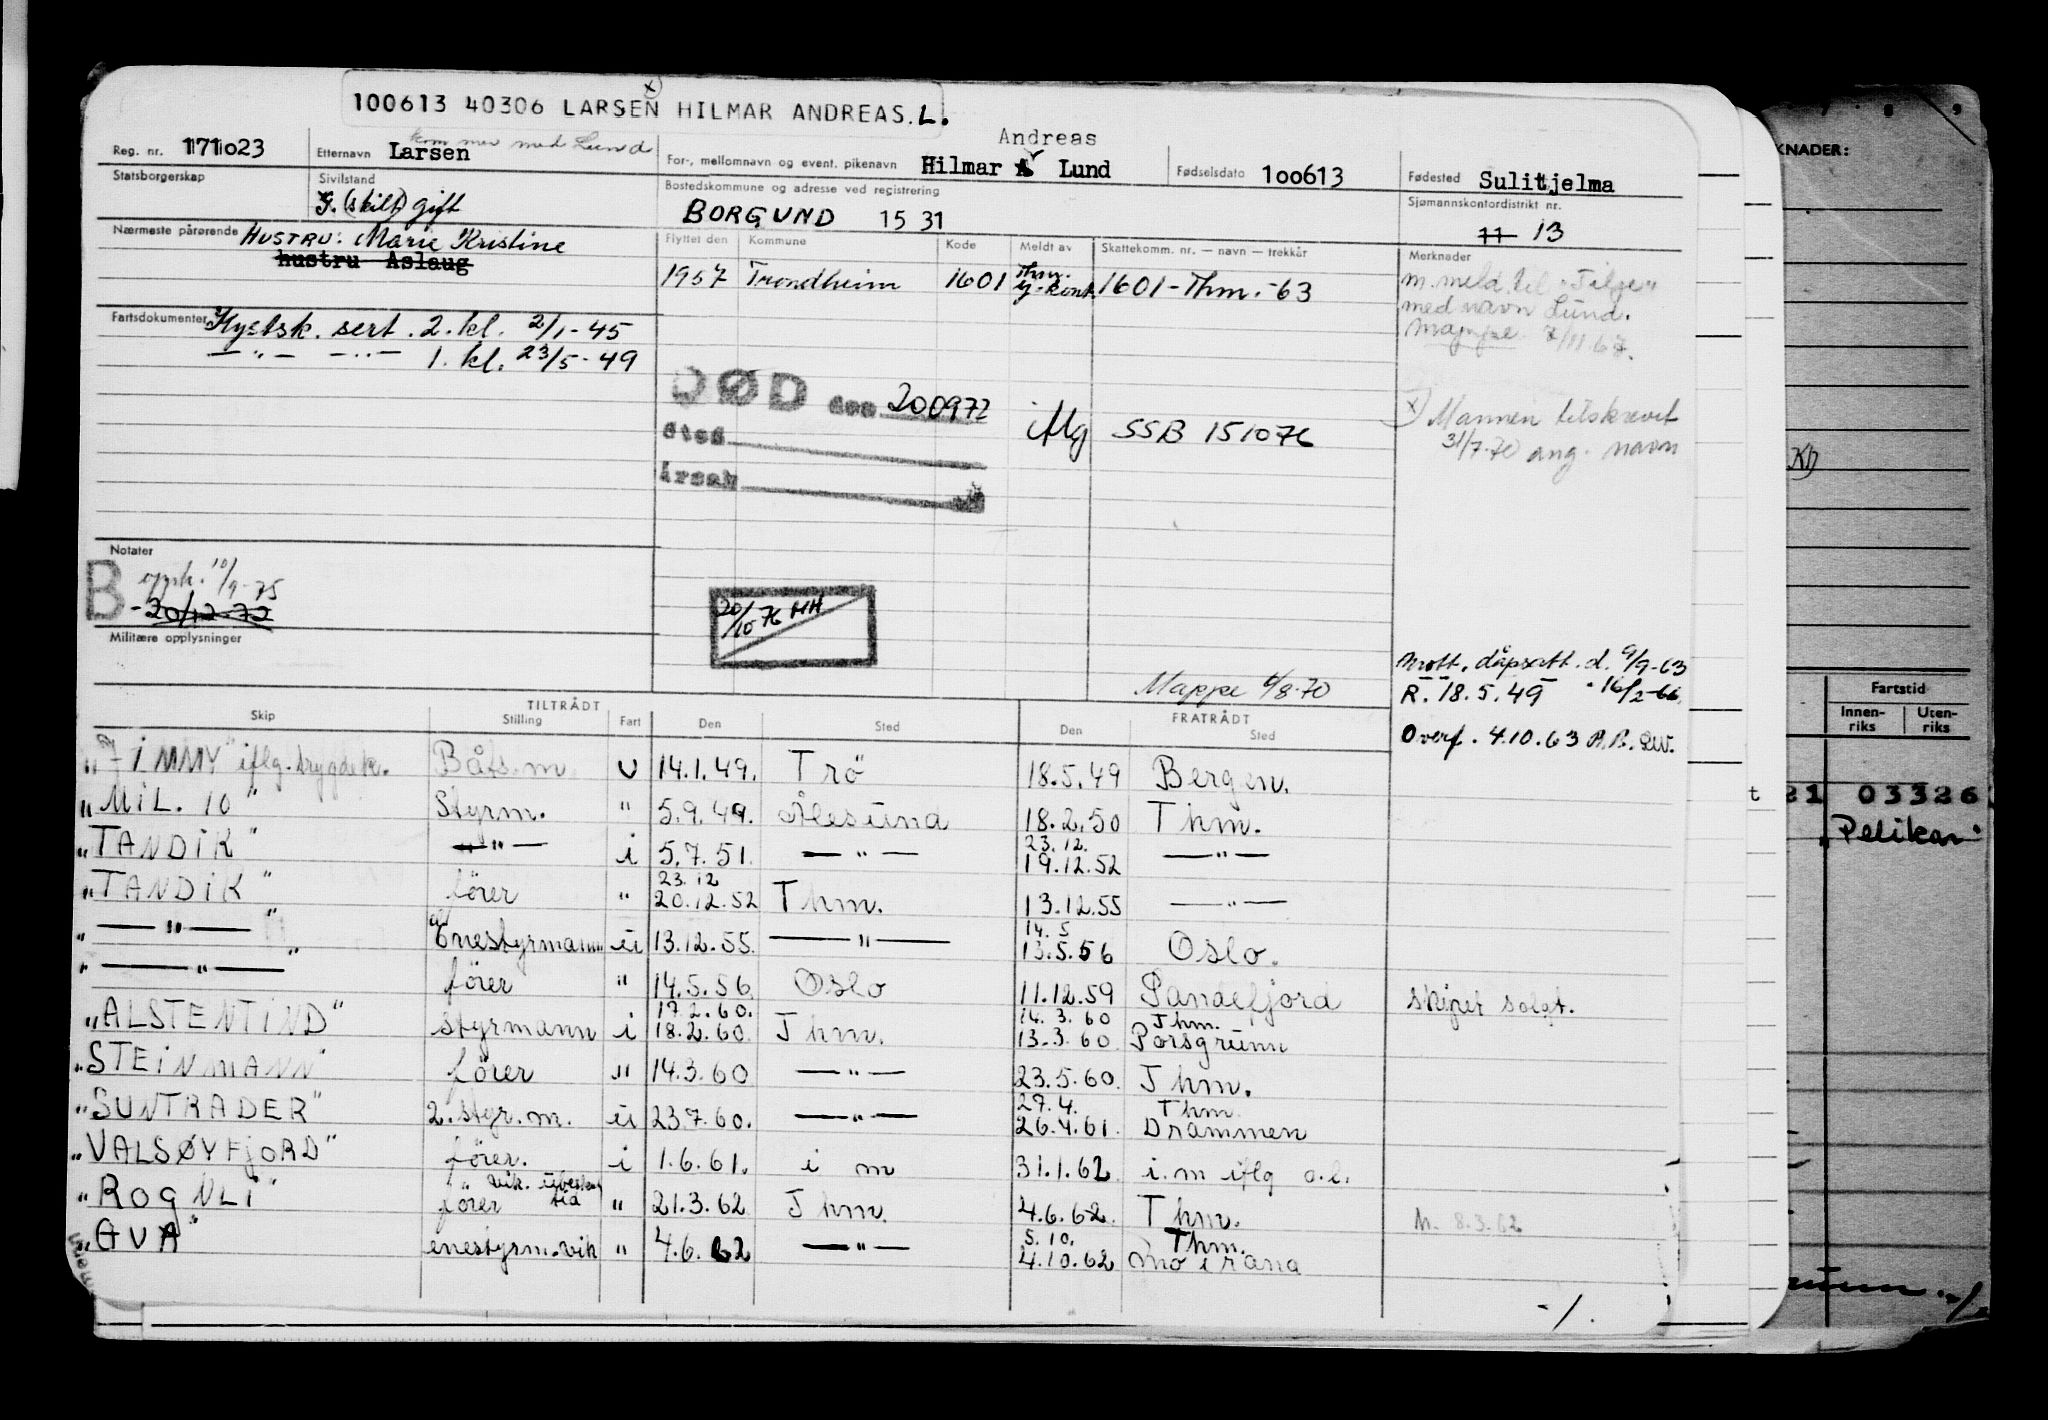 100613 40306 LARSEN HILMAR ANDREAS. L.
x)
Reg. nr. 171023
Etternavn Larsen
med Lund
For-, mellomnavn og event. pikenavn Hilmar A Lund
Andreas
Fødselsdato 100613
Fødested Sulitjelma
Statsborgerskap
Sivilstand
G. (skilt) gift
Bostedskommune og adresse ved registrering
BORGUND 1531
Sjømannskontordistrikt nr.
11 13
Nærmeste pårørende HUSTRU: Marie Kristine
hustru Aslaug
Flyttet den Kommune Kode Meldt av Skattekomm. nr. — navn — trekkår
1957 Trondheim 1601 Thm. 1601 - Thm. - 63
Merknader
m. meld. til "Tilje"
med navn Lund.
Mappe 7/11.67.
Fartsdokumenter Kystsk. sert. 2. kl. 2/1-45
— " — — " — 1. kl. 23/5-49
DØD den 200972
iflg SSB 151076
sted
årsak
x) Mannen tilskrevet
31/7.70 ang. navn
Notater
B
10/9-75
-20/12-72
Militære opplysninger
20/10 76 HH
Mappe 6/8.70
Mott. dåpsatt. d. 9/9-63
R. 18.5.49 " 16/2-66
Overf. 4.10.63
TILTRÅDT
FRATRÅDT
Skip Stilling Fart Den Sted Den Sted
"JIMMY" iflg. trygdek. Båtsm. U 14.1.49. Trö 18.5.49 Bergen.
"MIL. 10" Styrm. " 5.9.49. Ålesund 18.2.50 Thm.
"TANDIK" — " — i 5.7.51. — " — 23.12. 19.12.52 — " —
"TANDIK" förer " 23.12 20.12.52 Thm. 13.12.55 — " —
" — " — " enestyrmann ü 13.12.55. — " — 14.5 13.5.56 Oslo.
" — " — " förer " 14.5.56. Oslo 11.12.59 Sandefjord skipet solgt.
"ALSTENTIND" styrmann i 17.2.60. 18.2.60. Thm. 14.3.60 13.3.60 Thm. Porsgrunn
"STEINMANN" förer " 14.3.60 — " — 23.5.60. Thm.
"SUNTRADER" 2. styr.m. ü 23.7.60. — " — 27.4. 26.4.61. Thm. Drammen
"VALSØYFJORD" förer. i 1.6.61. i m 31.1.62 i.m iflg o.l.
"ROGNLI" förer vik. tid " 21.3.62 Thm. 4.6.62. Thm. M. 8.3.62
"GVA" enestyrm. vik " 4.6.62 — " — 5.10. 4.10.62 Thm. Mo i Rana
-/.
KNADER:
Fartstid
Innen-riks Uten-riks
t 21 03326
"Pelikan"